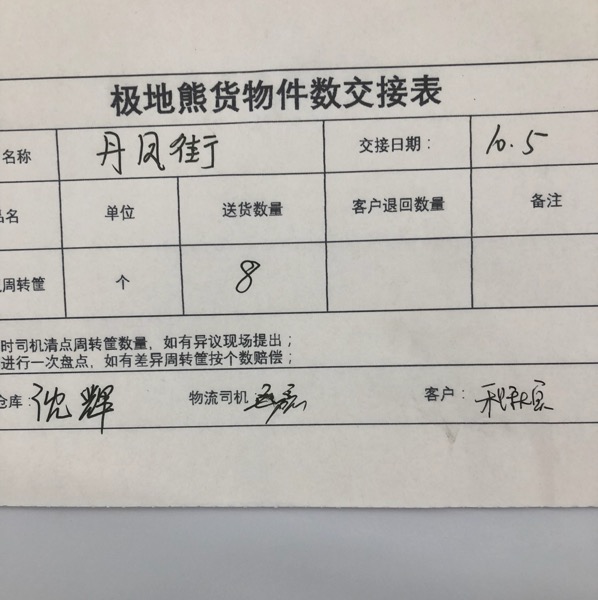 极地熊货物件数交接表
名称 丹凤街 交接日期： 10.5
品名 单位 送货数量 客户退回数量 备注
周转筐 个 8
时司机清点周转筐数量，如有异议现场提出；
进行一次盘点，如有差异周转筐按个数赔偿；
仓库： 沈辉 物流司机 客户：